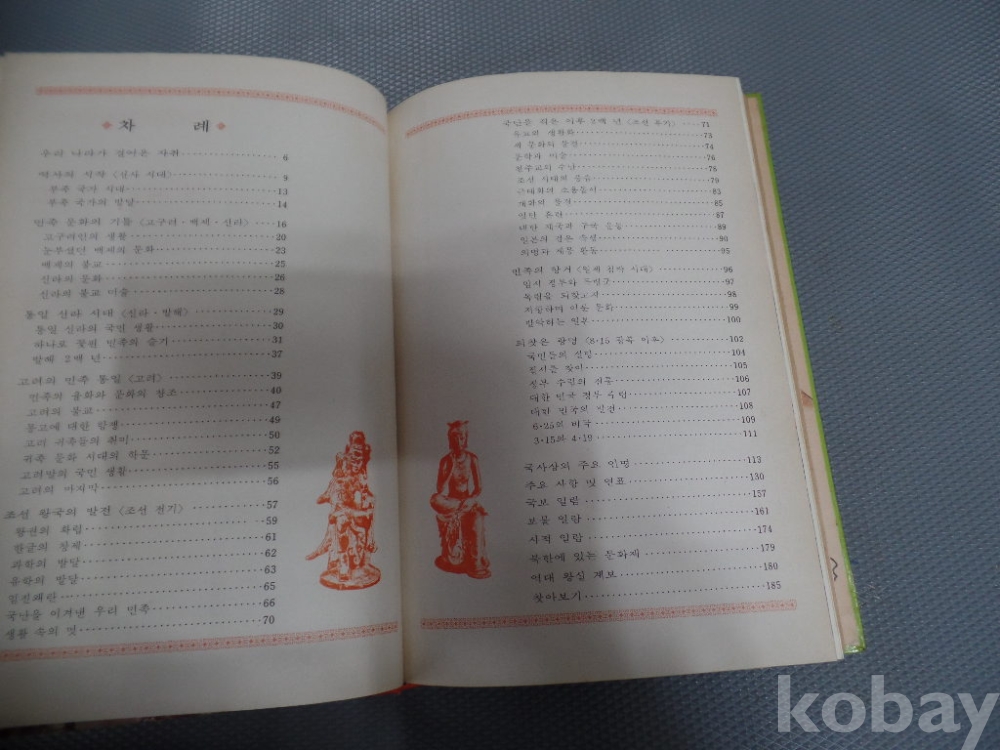 차 례
우리 나라가 걸어온 자취 6
역사의 시작 〈선사 시대〉 9
부족 국가 시대 13
부족 국가의 발달 14
민족 문화의 기틀 〈고구려·백제·신라〉 16
고구려인의 생활 20
눈부셨던 백제의 문화 23
백제의 불교 25
신라의 문화 26
신라의 불교 미술 28
통일 신라 시대 〈신라·발해〉 29
통일 신라의 국민 생활 30
하나로 꽃핀 민족의 슬기 31
발해 2백 년 37
고려의 민족 통일 〈고려〉 39
민족의 융화와 문화의 창조 40
고려의 불교 47
몽고에 대한 항쟁 49
고려 귀족들의 취미 50
귀족 문화 시대의 학문 52
고려말의 국민 생활 55
고려의 마지막 56
조선 왕국의 발전 〈조선 전기〉 57
왕권의 확립 59
한글의 창제 61
과학의 발달 62
유학의 발달 63
임진왜란 65
국난을 이겨낸 우리 민족 66
생활 속의 멋 70
국난을 겪은 이후 2백 년 〈조선 후기〉 71
73
새 문화의 등장 74
문학과 미술 76
천주교의 수난 78
조선 시대의 풍습 79
근대화의 소용돌이 83
개화의 등장 85
87
대한 제국과 구국 운동 89
일본의 침략 90
계몽 운동 95
민족의 항거 〈일제 침략 시대〉 96
임시 정부와 독립군 97
독립을 되찾고자 98
문화 99
발악하는 일본 100
되찾은 광명 〈8·15 광복 이후〉 102
국민들의 104
질서를 찾아 105
정부 수립의 진통 106
대한 민국 정부 수립 107
대한 민국의 발전 108
6·25의 비극 109
3·15와 4·19 111
국사상의 주요 인명 113
주요 사항 및 연표 130
국보 일람 157
보물 일람 161
사적 일람 174
북한에 있는 문화재 179
역대 왕실 계보 180
찾아보기 185
kobay